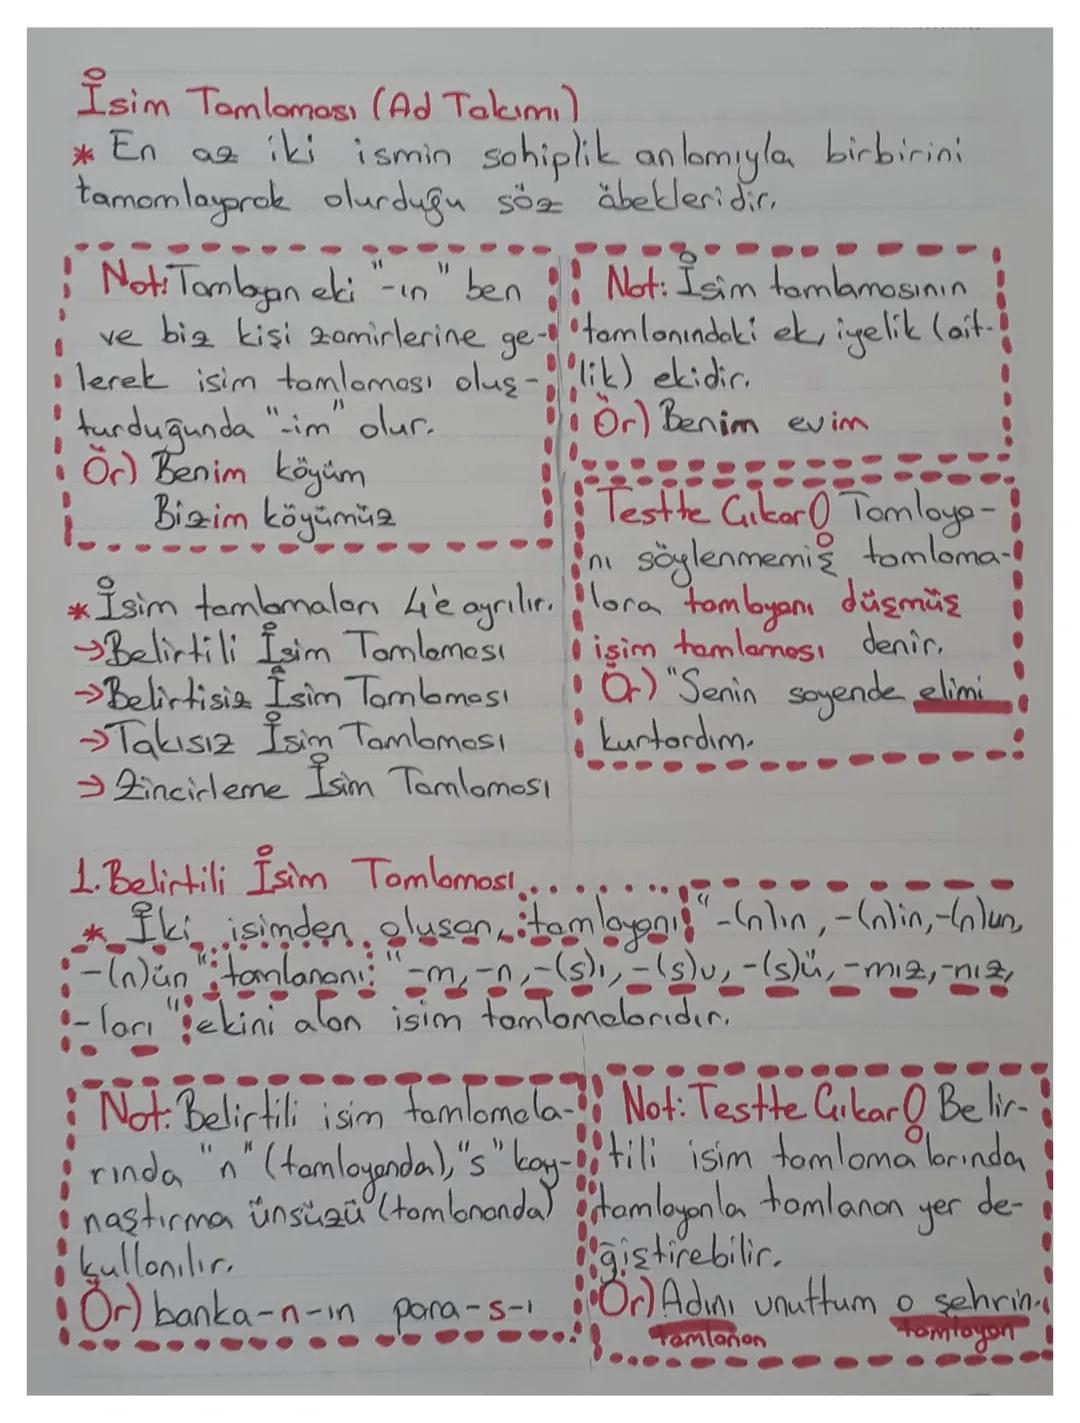 İsim Tamlaması (Ad Takımı)
* En az iki ismin sahiplik anlamıyla birbirini
tamamlayarak olurduğu söz öbekleridir.
Not: Tamlayan eki "-ın" ben
ve biz kişi zamirlerine ge-
lerek isim tamlaması oluş-
turduğunda "-im" olur.
Ör) Benim köyüm
Bizim köyümüz
Not: İsim tamlamasının
tamlanındaki ek, iyelik (ait-
lik) ekidir.
Ör) Benim evim
Testte Çıkar! Tamlaya-
nı söylenmemiş tamlama-
lara tamlayanı düşmüş
isim tamlaması denir.
Ör) "Senin sayende elimi
kurtardım.
* İsim tamlamaları 4'e ayrılır.
→Belirtili İsim Tamlaması
→Belirtisiz İsim Tamlaması
→Takısız İsim Tamlaması
→Zincirleme İsim Tamlaması
1. Belirtili İsim Tamlaması
* İki isimden oluşan, tamlayanı "-(n)ın, -(n)in, -(n)un,
-(n)ün" tamlananı: "-m, -n, -(s)ı, -(s)u, -(s)ü, -mız, -nız,
-ları" ekini alan isim tamlamalarıdır.
Not: Belirtili isim tamlamala-
rında "n" (tamlayanda), "s" kay-
naştırma ünsüzü (tamlananda)
kullanılır.
Ör) banka-n-ın para-s-ı
Not: Testte Çıkar! Belir-
tili isim tamlamalarında
tamlayanla tamlanan yer de-
ğiştirebilir.
Ör) Adını unuttum o şehrin.
tamlanan tamlayan